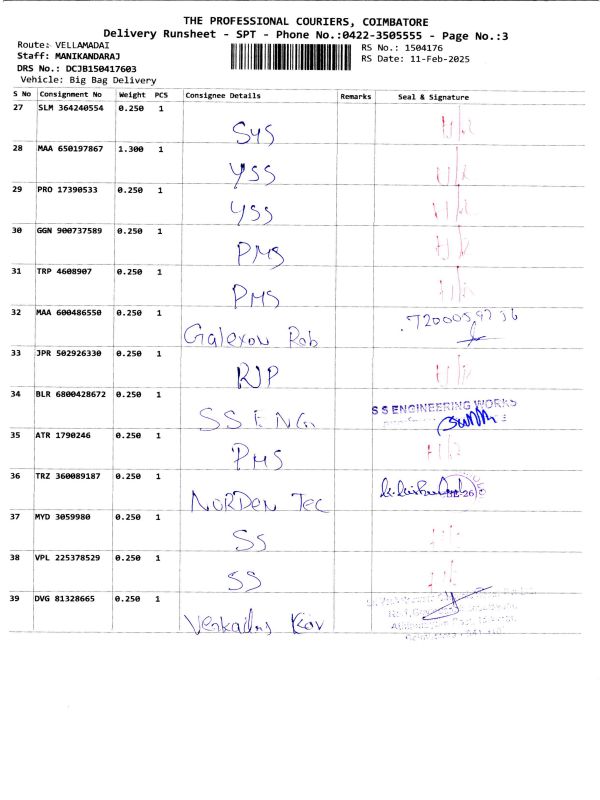 THE PROFESSIONAL COURIERS, COIMBATORE
Delivery Runsheet - SPT - Phone No.:0422-3505555 - Page No.:3
Route: VELLAMADAI
Staff: MANIKANDARAJ
DRS No.: DCJB150417603
Vehicle: Big Bag Delivery
RS No.: 1504176
RS Date: 11-Feb-2025
S No Consignment No Weight PCS Consignee Details Remarks Seal & Signature
27 SLM 364240554 0.250 1 SYS
28 MAA 650197867 1.300 1 YSS
29 PRO 17390533 0.250 1 YSS
30 GGN 900737589 0.250 1 PMS
31 TRP 4608907 0.250 1 PMS
32 MAA 600486550 0.250 1 Galexon Rob
33 JPR 502926330 0.250 1 RJP
34 BLR 6800428672 0.250 1 SS ENG. S S ENGINEERING WORKS
35 ATR 1790246 0.250 1 PMS
36 TRZ 360089187 0.250 1 NORDEN TEC
37 MYD 3059980 0.250 1 SS
38 VPL 225378529 0.250 1 SS
39 DVG 81328665 0.250 1